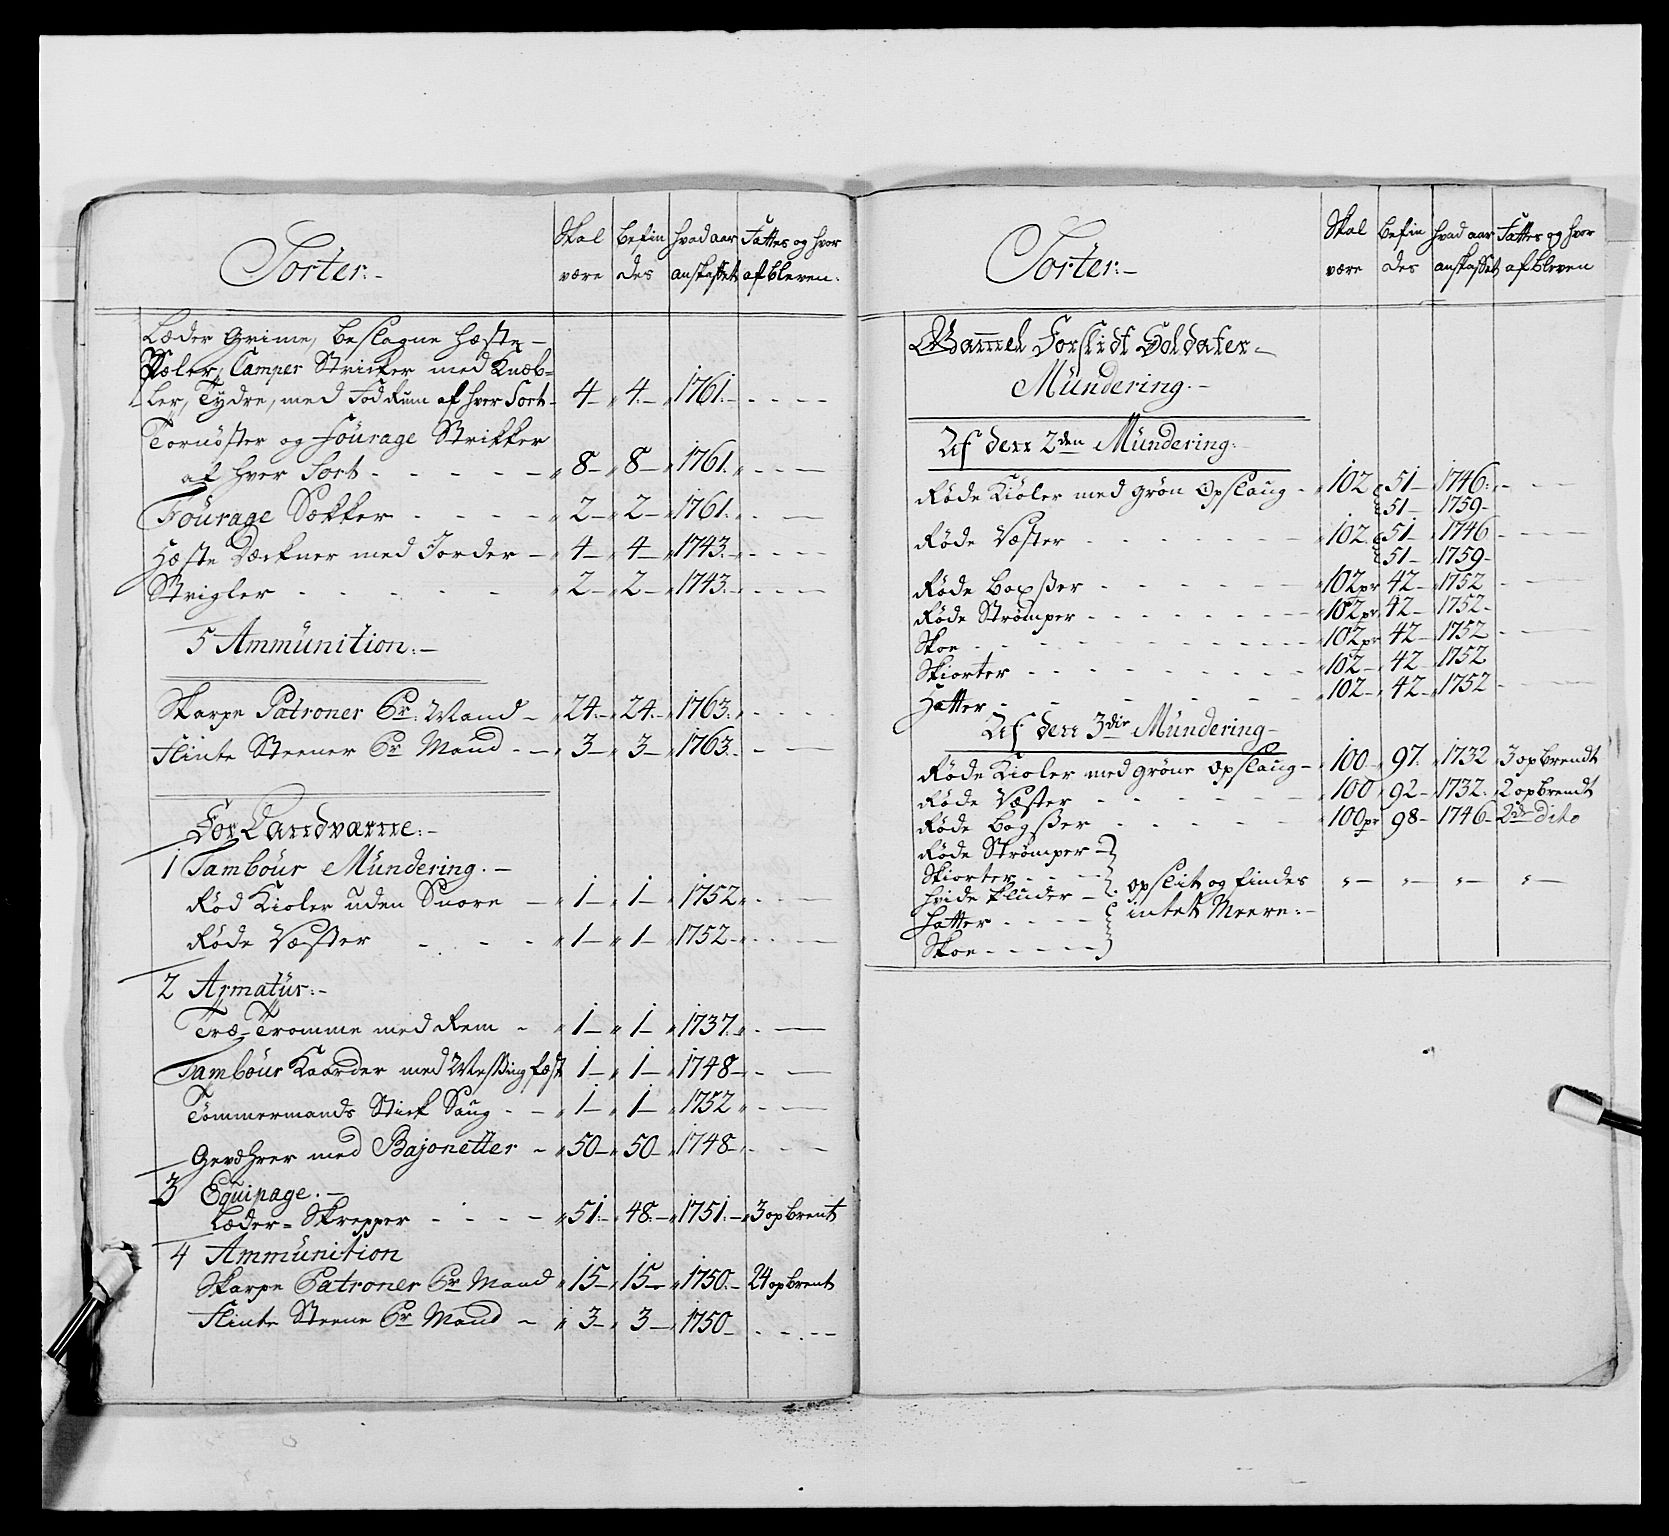 Sorter:-
Skal være
Befindes
hvad aar anskaffet
Fattes og hvor afbleven.
Læder Grime, beslagne Hæste-
Pæler, Camper Stricker med Knæb-
ler, Tydre, med Fodrum af hver Sort - 4 - 4 - 1761. - - -
Tornøster og Fourage Strikker
af hver Sort - - - 8 - 8 - 1761. - - -
Fourage Sækker - - - 2 - 2 - 1761. - - -
Hæste Dæckner med Jorder - 4 - 4 - 1743. - - -
Strigler - - - 2 - 2 - 1743. - - -
5 Ammunition:-
Skarpe Patroner Pr: Mand - 24 - 24 - 1763. - - -
Flinte Steener Pr Mand - 3 - 3 - 1763. - - -
For Landværne:-
1 Tambour Mundering.-
Rød Kioler uden Snore - 1 - 1 - 1752 - - -
Røde Væster - - - 1 - 1 - 1752 - - -
2 Armatur:-
Træ-Tromme med Rem - 1 - 1 - 1737. - - -
Tambour Kaarder med Messing fæst 1 - 1 - 1748 - - -
Tømmermands Stick Saug - - 1 - 1 - 1752 - - -
Gevæhrer med Bajonetter - 50 - 50 - 1748 - - -
3 Equipage.-
Læder-Skrepper - - - 51 - 48 - 1751. - 3 opbrent
4 Ammunition
Skarpe Patroner Pr Mand - 15 - 15 - 1750. - 24 opbrent
Flinte Steene Pr Mand - 3 - 3 - 1750 - - -
Sorter:-
Skal være
Befindes
hvad aar anskaffet
Fattes og hvor afbleven
Gammel Forslidt Soldater-
Mundering.-
Af den 2den Mundering:-
Røde Kioler med grøn Opslaug - 102 51 - 1746. - - -
51 - 1759 -
Røde Væster - - - 102 51 - 1746 - - -
51 - 1759 -
Røde Boxßer - - - 102 pr 42 - 1752 - - -
Røde Strømper - - - 102 pr 42 - 1752 -
Skoe - - - 102 pr 42 - 1752 - - -
Skiorter - - - 102 - 42 - 1752
Hatter - - - 102 - 42 - 1752 - - -
Af den 3die Mundering -
Røde Kioler med grøne Opslaug - 100 - 97. 1732 3 opbrendt
Røde Væster - - - 100 92 - 1732. 2 opbrendt
Røde Bogßer - - - 100 pr 98 - 1746 - 2 de dito
Røde Strømper -
Skiorter - - -
Hvide Kluder - opslit og findes
Hatter - - - intet Meere:-
Skoe - - - -